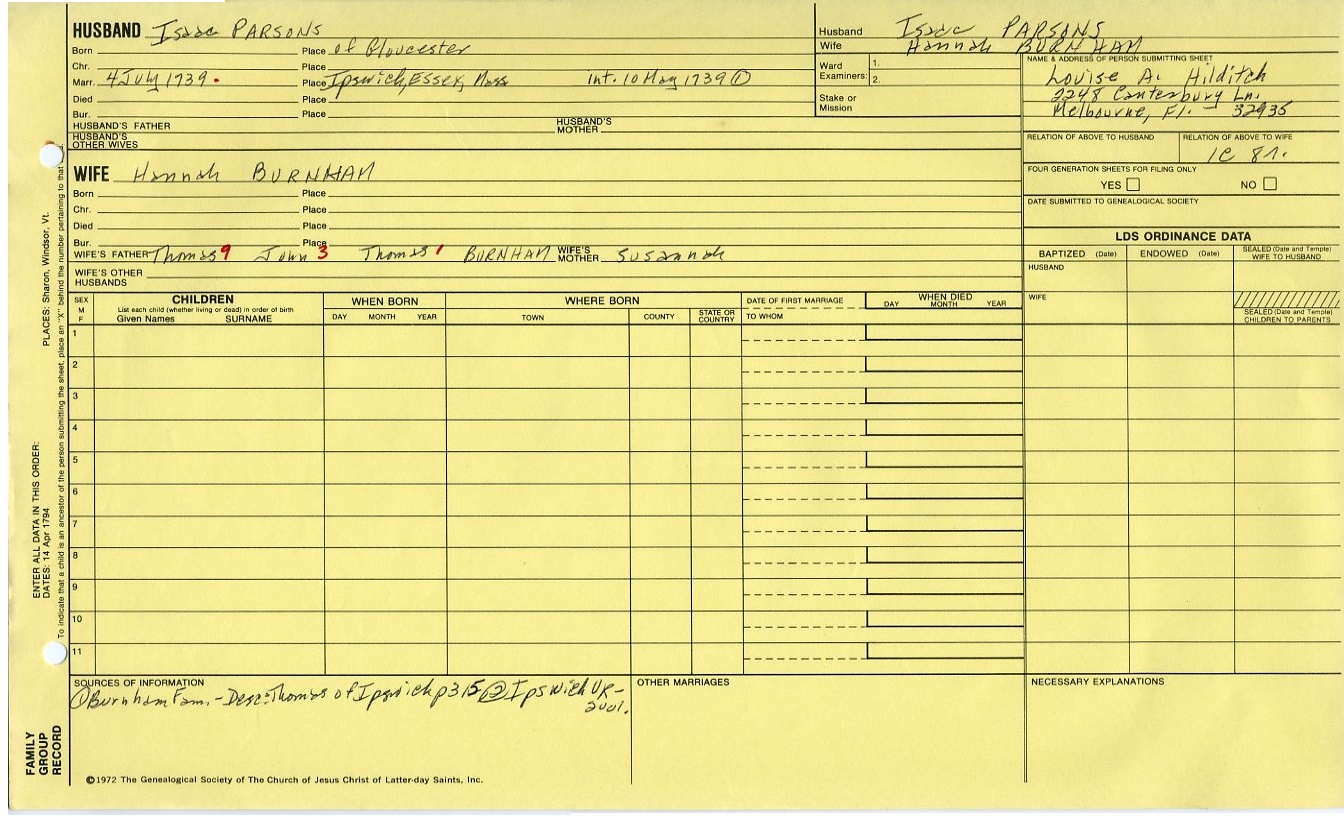 HUSBAND Isaac PARSONS
Born Place of Gloucester
Chr. Place
Marr. 4 July 1739. Place Ipswich, Essex, Mass int. 10 May 1739 ①
Died Place
Bur. Place
HUSBAND'S FATHER HUSBAND'S MOTHER
HUSBAND'S OTHER WIVES
Husband Isaac PARSONS
Wife Hannah BURNHAM
Ward Examiners: 1. 2.
Stake or Mission
NAME & ADDRESS OF PERSON SUBMITTING SHEET
Louise A. Hilditch
2248 Canterbury Ln.
Melbourne, Fl. 32935
RELATION OF ABOVE TO HUSBAND RELATION OF ABOVE TO WIFE
1C 8r.
FOUR GENERATION SHEETS FOR FILING ONLY
YES NO
DATE SUBMITTED TO GENEALOGICAL SOCIETY
WIFE Hannah BURNHAM
Born Place
Chr. Place
Died Place
Bur. Place
WIFE'S FATHER Thomas 9 John 3 Thomas 1 BURNHAM WIFE'S MOTHER Susannah
WIFE'S OTHER HUSBANDS
LDS ORDINANCE DATA
BAPTIZED (Date) ENDOWED (Date) SEALED (Date and Temple) WIFE TO HUSBAND
HUSBAND
WIFE
SEALED (Date and Temple) CHILDREN TO PARENTS
SEX M F
CHILDREN
List each child (whether living or dead) in order of birth
Given Names SURNAME
WHEN BORN
DAY MONTH YEAR
WHERE BORN
TOWN COUNTY STATE OR COUNTRY
DATE OF FIRST MARRIAGE
TO WHOM
WHEN DIED
DAY MONTH YEAR
1
2
3
4
5
6
7
8
9
10
11
SOURCES OF INFORMATION
① Burnham Fam. - Desc: Thomas of Ipswich p 315 ② Ipswich VR-
2001.
OTHER MARRIAGES
NECESSARY EXPLANATIONS
©1972 The Genealogical Society of The Church of Jesus Christ of Latter-day Saints, Inc.
FAMILY GROUP RECORD
ENTER ALL DATA IN THIS ORDER:
DATES: 14 Apr 1794 PLACES: Sharon, Windsor, Vt.
To indicate that a child is an ancestor of the person submitting the sheet, place an "X" behind the number pertaining to that